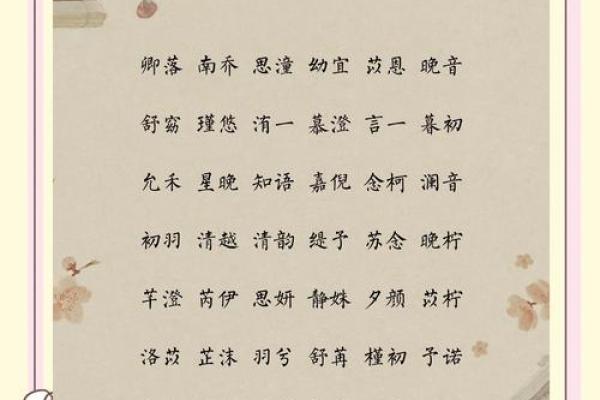 卿落 南乔 思潼 幼宜 苡恩 晚音
舒窈 瑾悠 洧一 慕澄 言一 暮初
允禾 星晚 知语 嘉倪 念柯 澜音
初羽 清越 清韵 缇予 苏念 晚柠
芊澄 芮伊 思妍 静姝 夕颜 苡柠
洛苡 芷沫 羽兮 舒苒 槿初 予诺